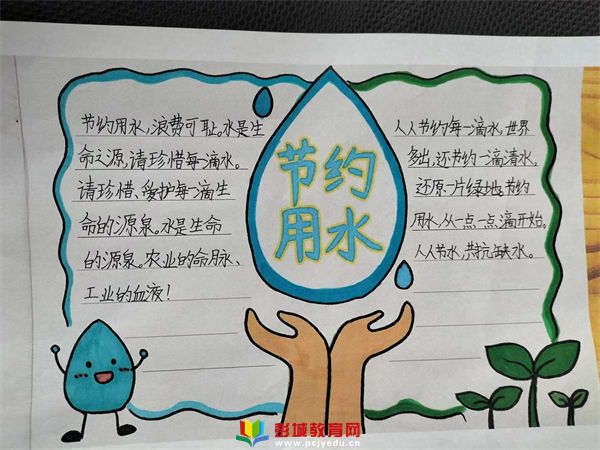 节约用水,浪费可耻。水是生
命之源,请珍惜每一滴水。
请珍惜、爱护每一滴生
命的源泉。水是生命
的源泉。农业的命脉、
工业的血液!
节约
用水
人人节约每一滴水,世界
多出,还节约一滴清水,
还原一片绿地。节约
用水,从一点一滴开始。
人人节水,共抗缺水。
彭城教育网
www.pcjyedu.cn